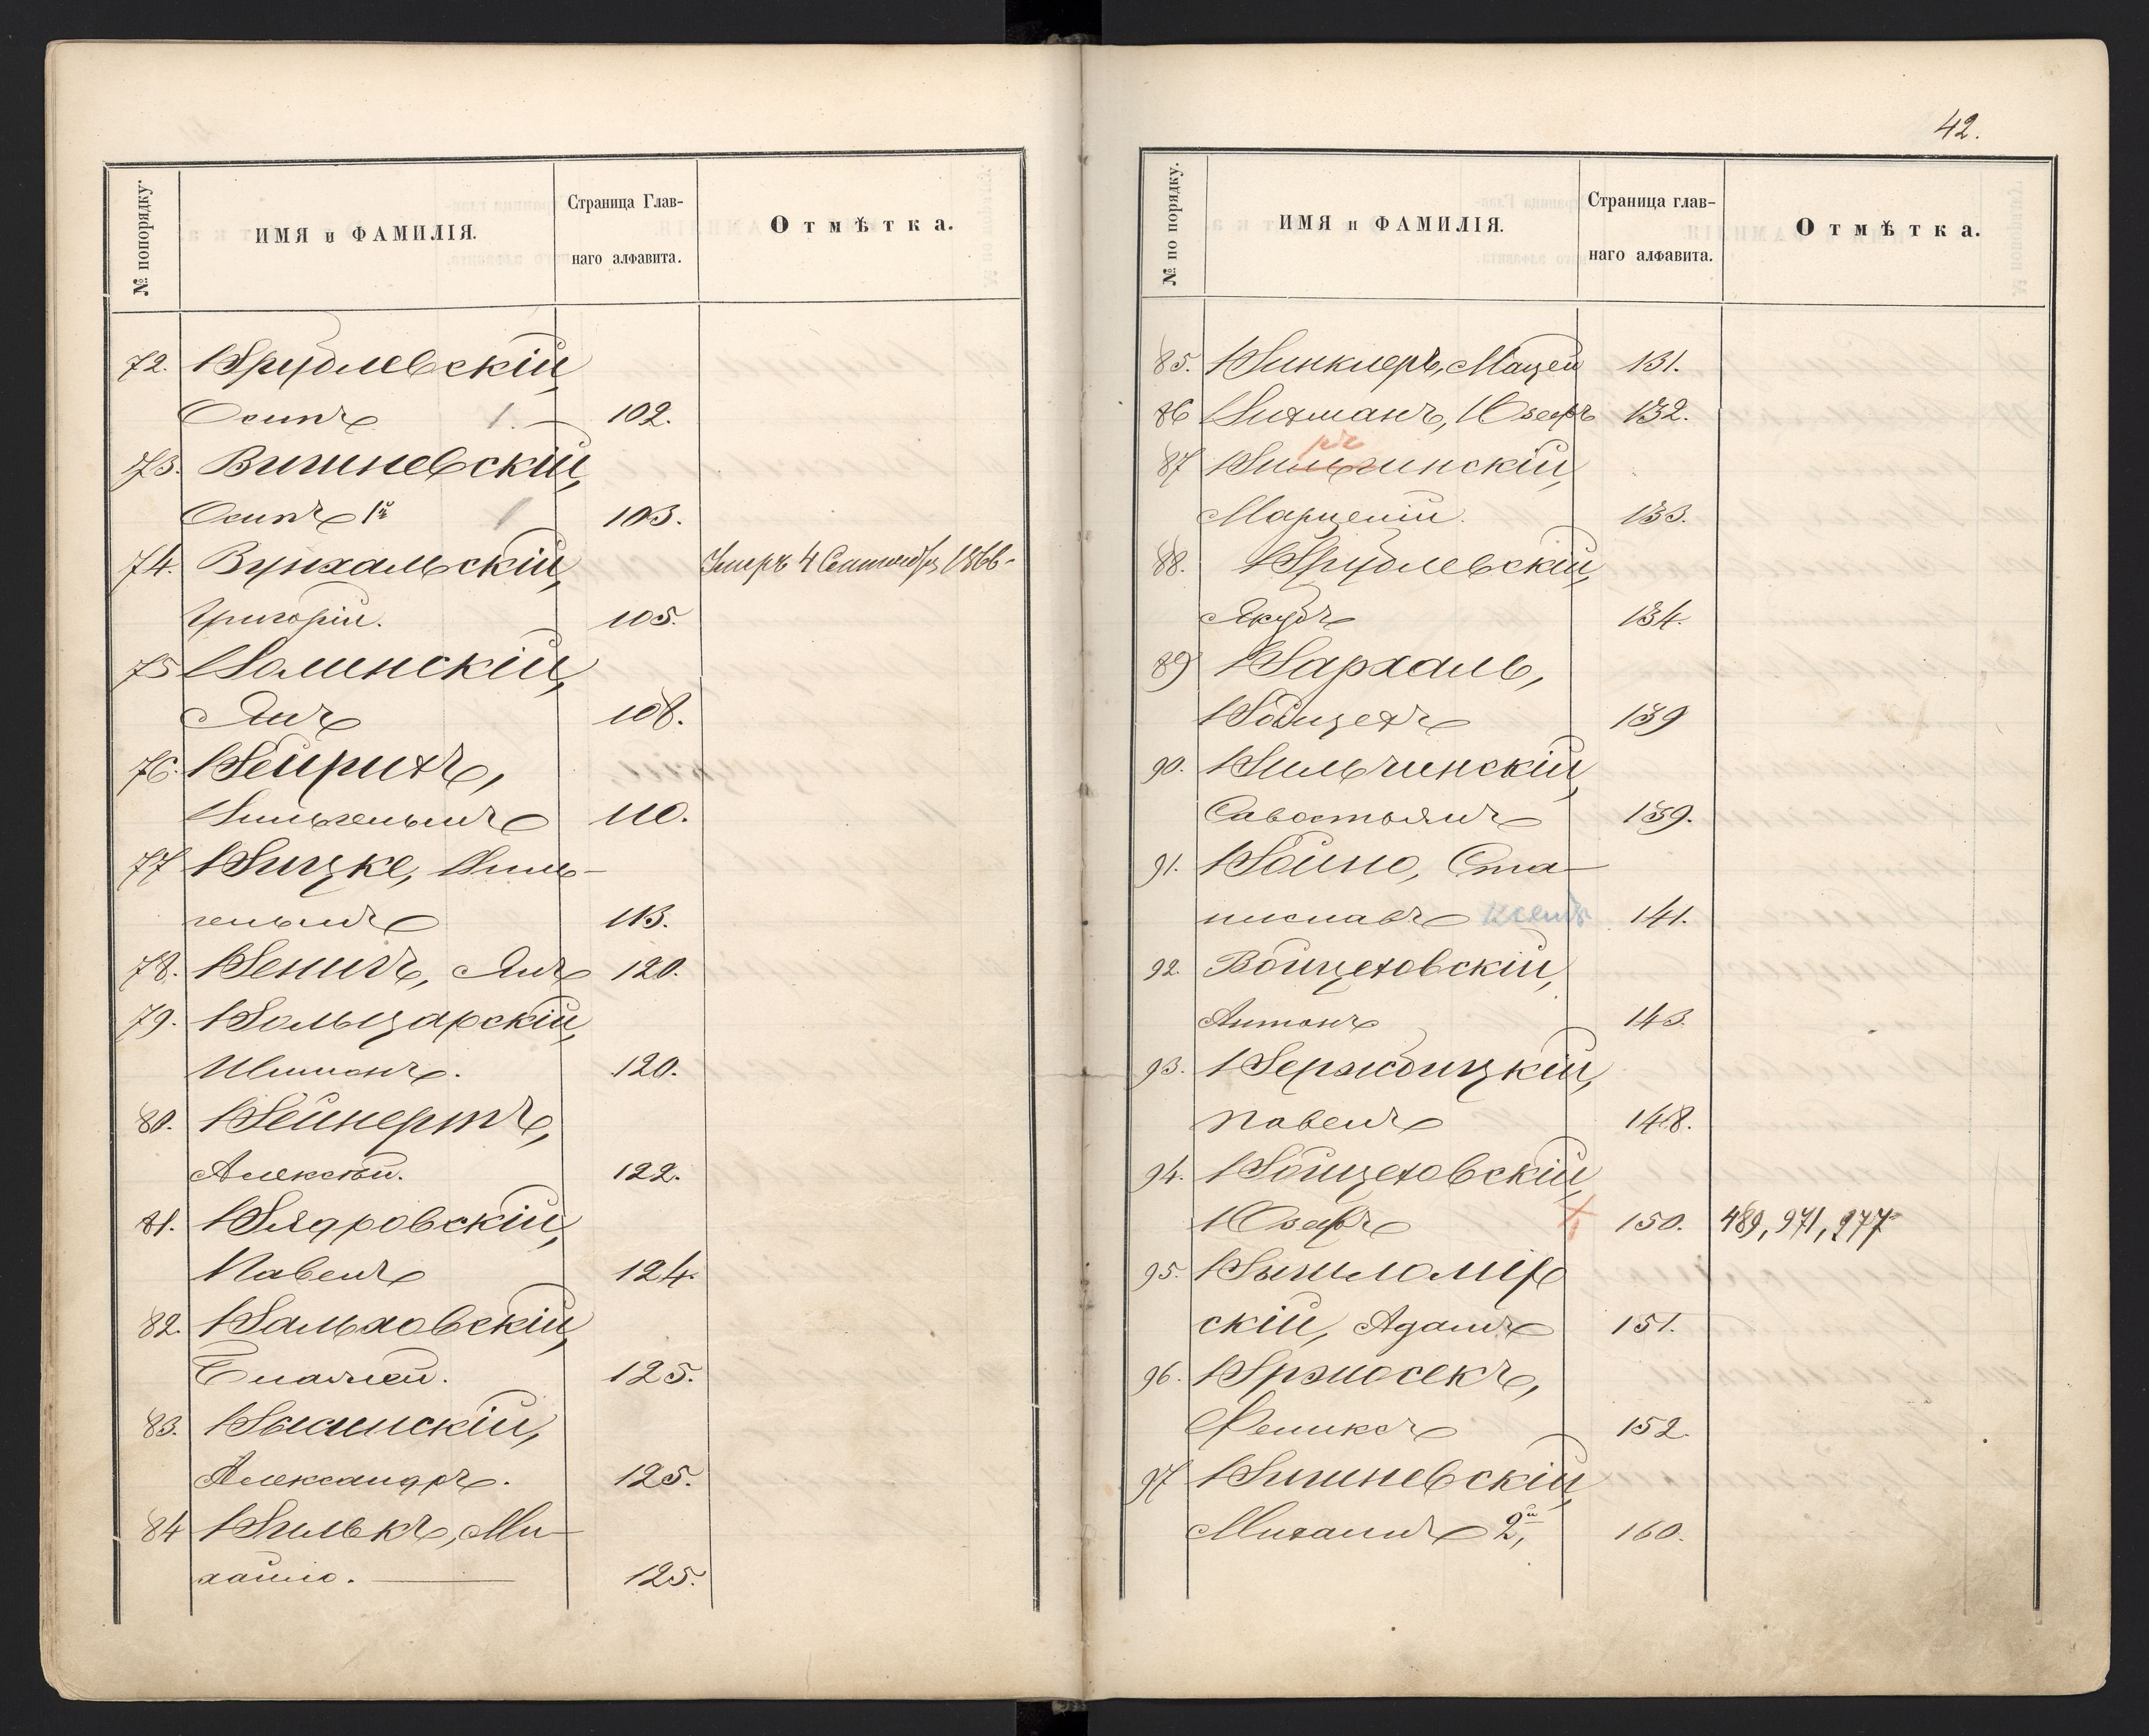 № попорядку.
ИМЯ и ФАМИЛІЯ.
Страница Глав-
наго алфавита.
Отмѣтка.
72. Врублевскій,
Осипъ 1. — 102.
73. Вишневскій,
Осипъ 1й 1 103.
74. Вунхальскій, Умеръ 4 Сентября 1866 -
Григорій. 105.
75 Волинскій,
Янъ 108.
76. Вейрихъ,
Вильгельмъ 110.
77 Вицке, Виль-
гельмъ 113.
78. Венигъ, Янъ 120.
79. Вольцарскій,
Шимонъ. 120.
80. Вейнертъ,
Алексѣй. 122.
81. Влядровскій,
Павелъ 124.
82. Вальховскій,
Блажей. 125.
83. Высинскій,
Александръ. 125.
84 Вилькъ, Ми-
хайло. — 125.
42.
№ по порядку.
ИМЯ и ФАМИЛІЯ.
Страница глав-
наго алфавита.
Отмѣтка.
85. Винклеръ, Мацей 131.
86 Вихманъ, Юзефъ 132.
87
Марцелій. 133.
88. Врублевскій,
Якубъ 134.
89 Вархаль,
Войцехъ 139
90. Вильчинскій,
Савостьянъ 139.
91. Войно, Ста-
ниславъ ксендз 141.
92. Войцеховскій,
Антонъ 143.
93. Вержбицкій,
Павелъ 148.
94. Войцеховскій,
Юзефъ 150. 489, 971, 977
95. Вышломір
скій, Адамъ 151.
96. Врзосекъ,
Феликсъ 152.
97 Вишневскій,
Михаилъ 2й, 160.